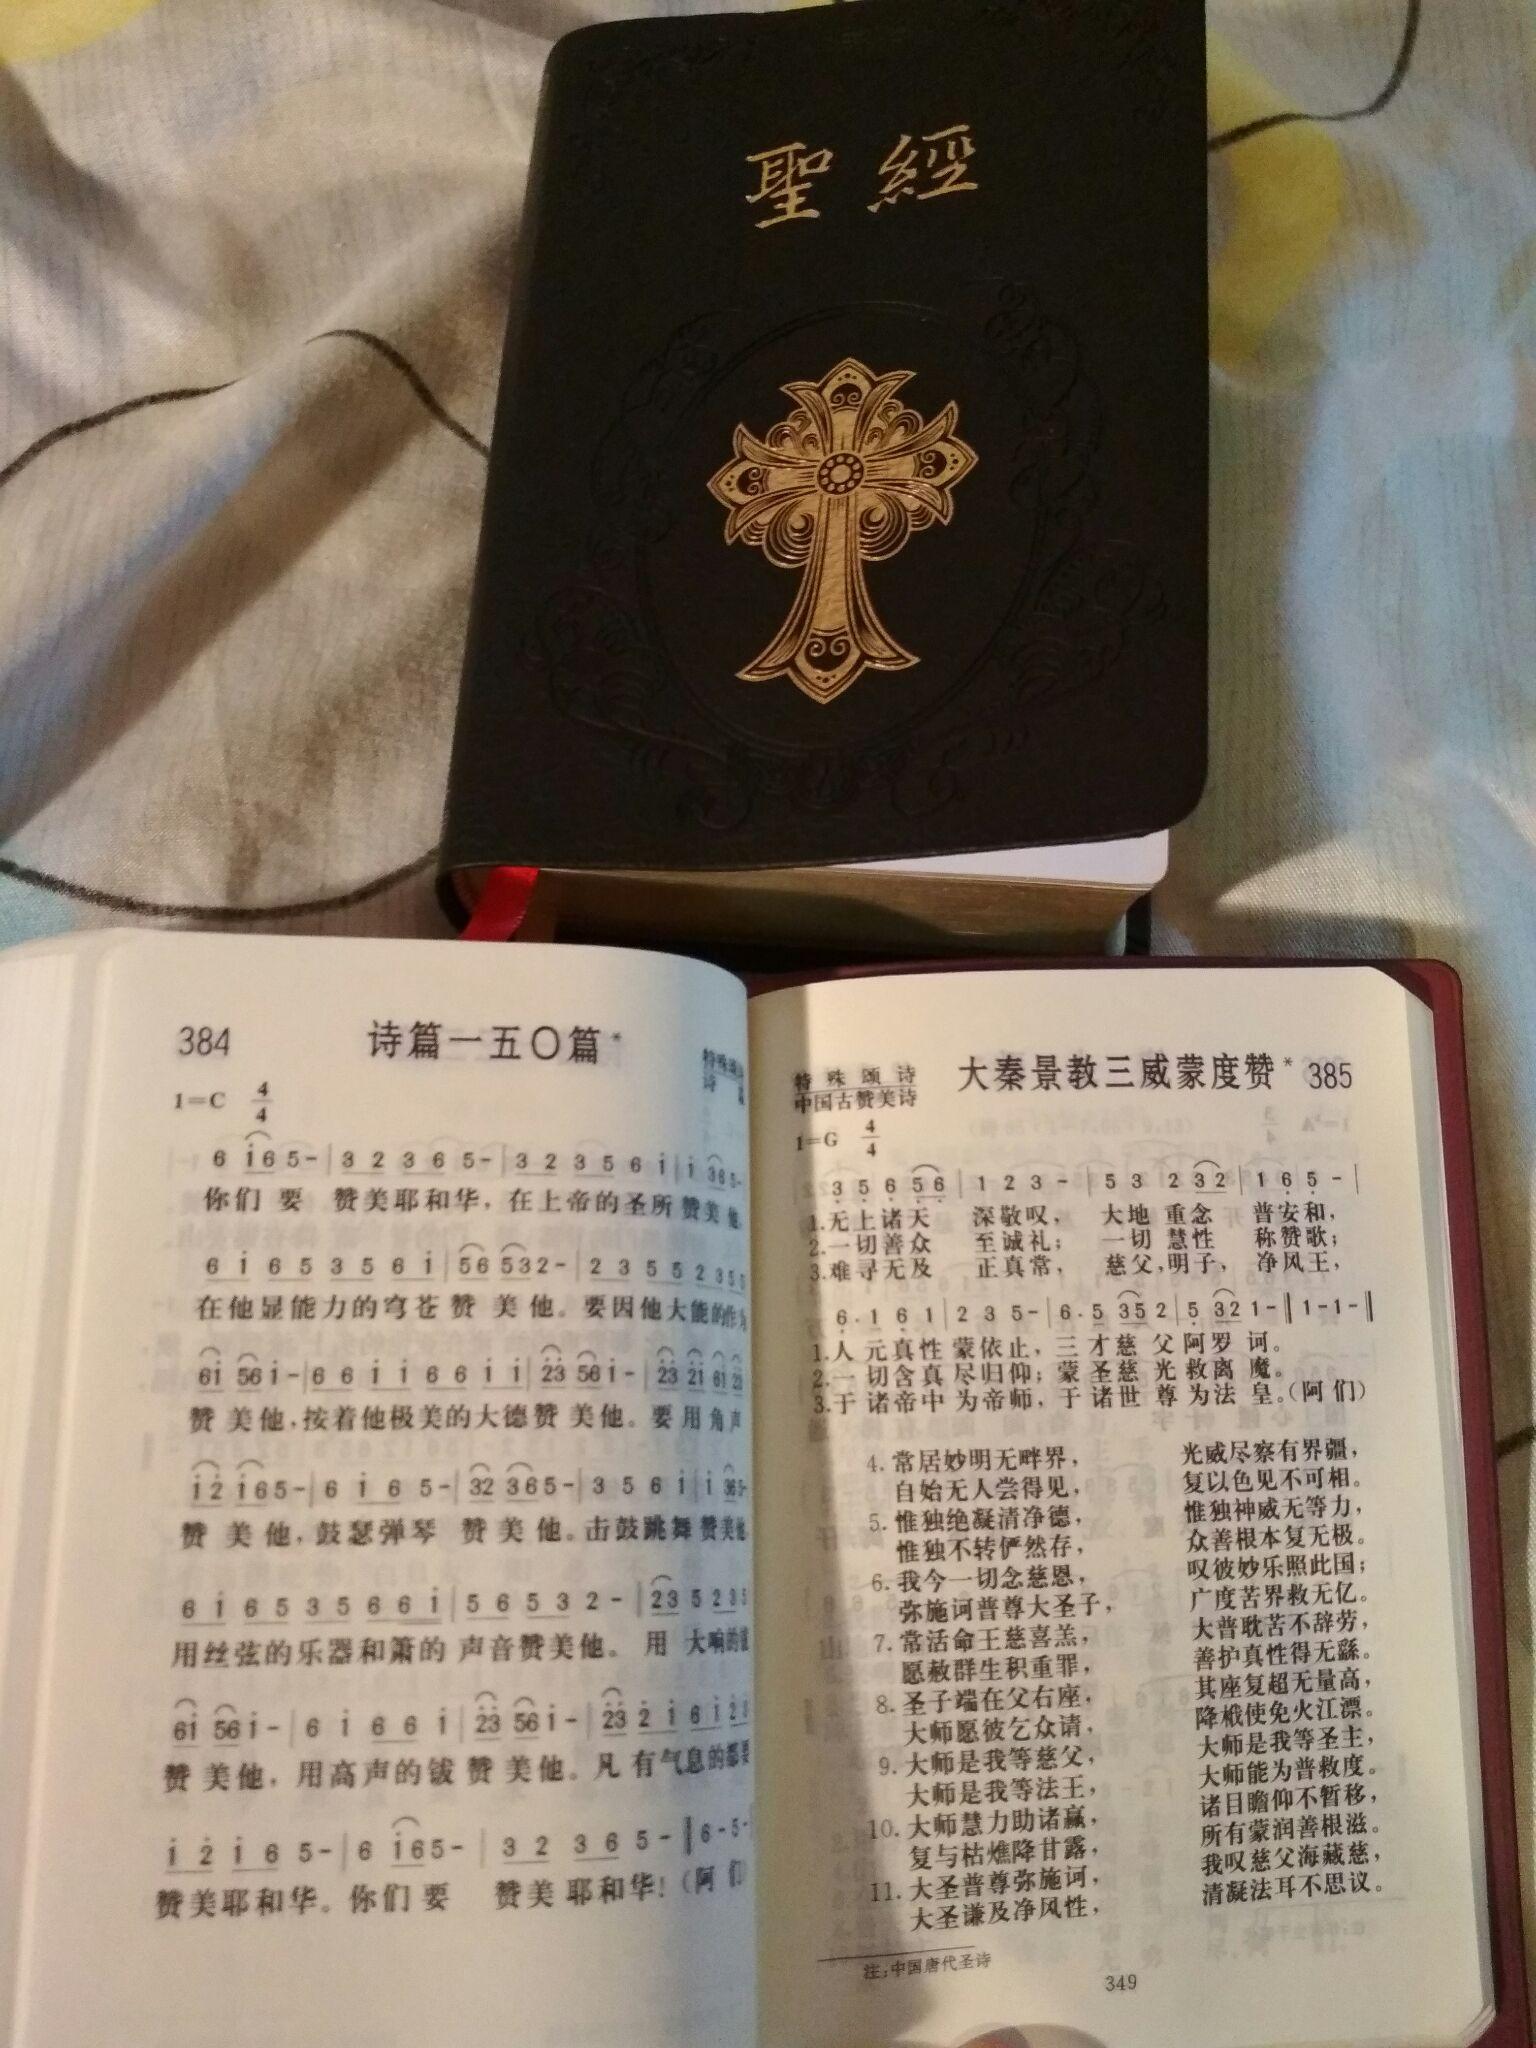 聖經
384
诗篇一五〇篇*
1=C 4/4
6 i6 5- | 3 2 3 6 5- | 3 2 3 5 6 i | i 365-
你们 要 赞美耶和华，在上帝的圣所 赞美 他
6 i 6 5 3 5 6 i | 56 532- | 2 3 5 5 2 3
在他显能力的穹苍 赞 美 他。要因他大能的作为
6i 56 i- | 6 6 i i 6 6 i i | 23 56 i- | 23 21 61 23
赞 美他，按着他极美的大德赞 美他。要 用 角 声
i 2 i65- | 6 i 6 5- | 32 365- | 3 5 6 i | i 365-
赞 美 他，鼓瑟弹琴 赞 美 他。击鼓跳舞 赞美他
6 i 6 5 3 5 6 6 i | 5 6 5 3 2 - | 23 5 2 3 5
用丝弦的乐器和箫的 声音赞美他。 用 大响的
6i 56 i- | 6 i 6 6 i | 23 56 i - | 23 2 i 6 i 2
赞 美他，用高声的钹 赞 美他。凡 有 气息的都要
i 2 i 6 5- | 6 i65- | 3 2 3 6 5 - ‖ 6-5-
赞美耶和华。你们 要 赞美 耶和华！（阿 们）
特殊颂诗
中国古赞美诗
大秦景教三威蒙度赞* 385
1=G 4/4
3 5 6 56 | 1 2 3 - | 5 3 2 32 | 1 6 5 - |
1.无上诸天 深敬叹， 大地 重念 普安和，
2.一切善众 至诚礼； 一切 慧性 称赞歌；
3.难寻无及 正真常， 慈父，明子， 净风王，
6. 1 6 1 | 2 3 5- | 6. 5 35 2 | 5 32 1- ‖ 1-1- ‖
1.人 元真性 蒙依止，三才慈 父阿罗 诃。
2.一切含真 尽归仰；蒙圣慈 光救离 魔。
3.于 诸帝中 为帝师，于诸世 尊为法 皇。（阿们）
4. 常居妙明无畔界， 光威尽察有界疆，
自始无人尝得见， 复以色见不可相。
5. 惟独绝凝清净德， 惟独神威无等力，
惟独不转俨然存， 众善根本复无极。
6. 我今一切念慈恩， 叹彼妙乐照此国；
弥施诃普尊大圣子， 广度苦界救无亿。
7. 常活命王慈喜羔， 大普耽苦不辞劳，
愿赦群生积重罪， 善护真性得无繇。
8. 圣子端在父右座， 其座复超无量高，
大师愿彼乞众请， 降栰使免火江漂。
9. 大师是我等慈父， 大师是我等圣主，
大师是我等法王， 大师能为普救度。
10. 大师慧力助诸羸， 诸目瞻仰不暂移，
复与枯燋降甘露， 所有蒙润善根滋。
11. 大圣普尊弥施诃， 我叹慈父海藏慈，
大圣谦及净风性， 清凝法耳不思议。
注：中国唐代圣诗
349